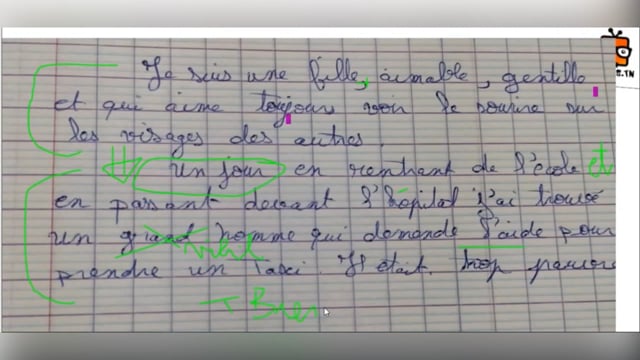 Je suis une fille, aimable, gentille
et qui aime toujours voir le sourire sur
les visages des autres.
un jour en rentrant de l'école et
en passant devant l'hôpital j'ai trouvé
un grand homme qui demande l'aide pour
prendre un taxi. Il était trop pauvre
T Bien
.TN